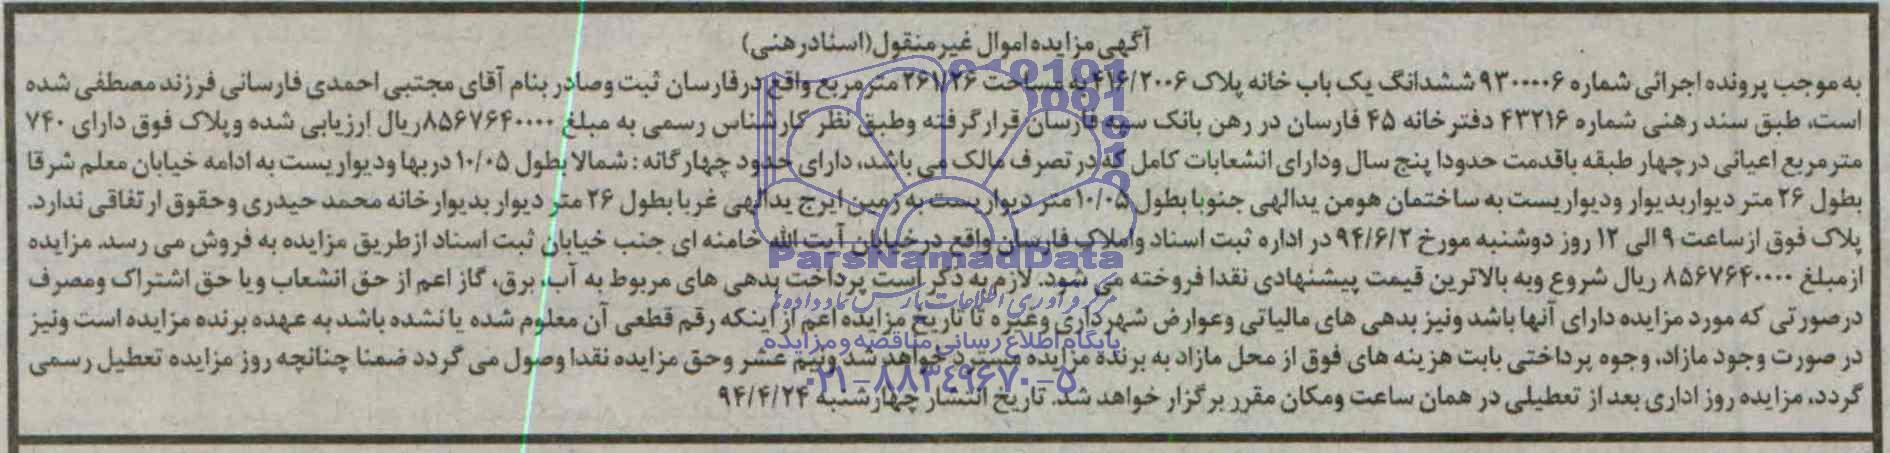 آگهی مزایده اموال غیر منقول(اسناد رهنی)
به موجب پرونده اجرائی شماره ۹۳۰۰۰۰۶ ششدانگ یک باب خانه پلاک ۴۱۶/۲۰۰۶ به مساحت ۲۶۱/۲۶ متر مربع واقع در فارسان ثبت وصادر بنام آقای مجتبی احمدی فارسانی فرزند مصطفی شده
است، طبق سند رهنی شماره ۴۳۲۱۶ دفترخانه ۴۵ فارسان در رهن بانک سپه فارسان قرار گرفته وطبق نظر کارشناس رسمی به مبلغ ۸۵۶۷۶۴۰۰۰۰ ریال ارزیابی شده وپلاک فوق دارای ۷۴۰
متر مربع اعیانی در چهار طبقه باقدمت حدودا پنج سال ودارای انشعابات کامل که در تصرف مالک می باشد، دارای حدود چهارگانه : شمالا بطول ۱۰/۰۵ دربها ودیواریست به ادامه خیابان معلم شرقا
بطول ۲۶ متر دیوار بدیوار ودیواریست به ساختمان هومن یدالهی جنوبا بطول ۱۰/۰۵ متر دیواریست به زمین ایرج یدالهی غربا بطول ۲۶ متر دیوار بدیوار خانه محمد حیدری وحقوق ارتفاقی ندارد.
پلاک فوق از ساعت ۹ الی ۱۲ روز دوشنبه مورخ ۹۴/۶/۲ در اداره ثبت اسناد واملاک فارسان واقع در خیابان آیت الله خامنه ای جنب خیابان ثبت اسناد از طریق مزایده به فروش می رسد. مزایده
از مبلغ ۸۵۶۷۶۴۰۰۰۰ ریال شروع وبه بالاترین قیمت پیشنهادی نقدا فروخته می شود. لازم به ذکر است پرداخت بدهی های مربوط به آب، برق، گاز اعم از حق انشعاب ویا حق اشتراک ومصرف
در صورتی که مورد مزایده دارای آنها باشد ونیز بدهی های مالیاتی وعوارض شهرداری وغیره تا تاریخ مزایده اعم از اینکه رقم قطعی آن معلوم شده یا نشده باشد به عهده برنده مزایده است ونیز
در صورت وجود مازاد، وجوه پرداختی بابت هزینه های فوق از محل مازاد به برنده مزایده مسترد خواهد شد ونیم عشر وحق مزایده نقدا وصول می گردد ضمنا چنانچه روز مزایده تعطیل رسمی
گردد، مزایده روز اداری بعد از تعطیلی در همان ساعت ومکان مقرر برگزار خواهد شد. تاریخ انتشار چهارشنبه ۹۴/۴/۲۴
ParsNamadData
مرکز فرآوری اطلاعات پارس نماد داده ها
پایگاه اطلاع رسانی مناقصه و مزایده
۰۲۱-۸۸۳۴۹۶۷۰-۵